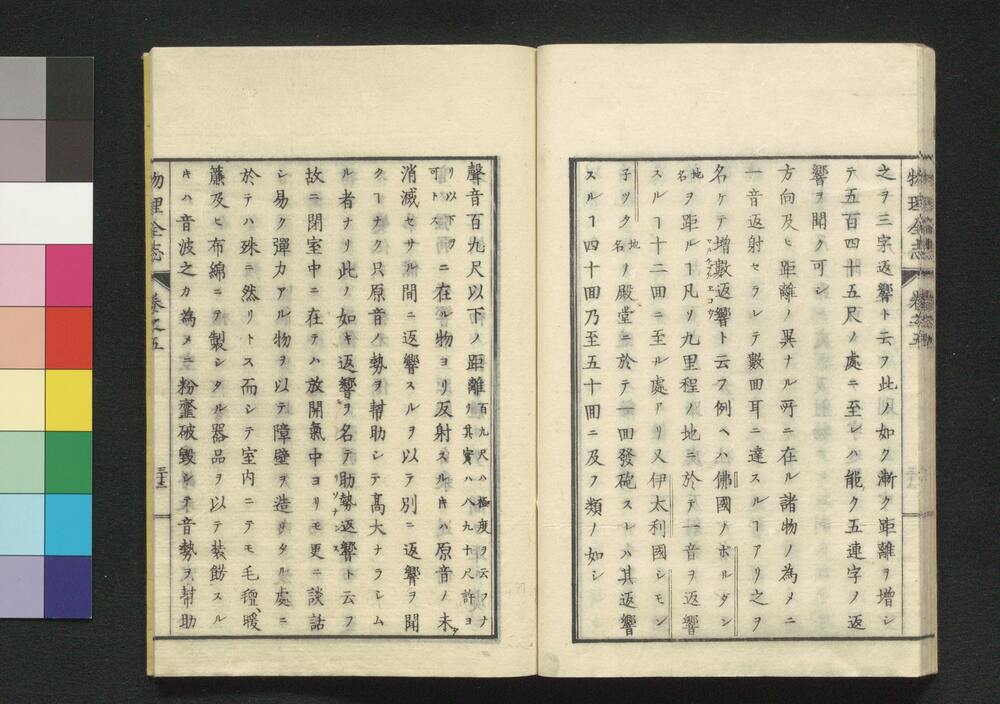 之ヲ三字返響ト云フ此ノ如ク漸ク距離ヲ增シ
テ五百四十五尺ノ處ニ至レハ能ク五連字ノ返
響ヲ聞ク可シ
方向及ヒ距離ノ異ナル所ニ在ル諸物ノ為メニ
一音返射セラレテ數囬耳ニ達スルヿアリ之ヲ
名ケテ增數返響ト云フ例ヘハ佛國ノボルダン
地名ヲ距ルヿ凡ソ九里程ノ地ニ於テ一音ヲ返響
スルヿ十二囬ニ至ル處アリ又伊太利國シモン
子ツタ地名ノ殿堂ニ於テ一囬發砲スレハ其返響
スルヿ四十囬乃至五十囬ニ及フ類ノ如シ
物理全志 卷之五
聲音百九尺以下ノ距離百九尺ハ極度ヲ云フナ
リ其實ハ八九十尺許ヨ
リ以下ヲ
可トスニ在ル物ヨリ反射スルキハ原音ノ未タ
消滅セサル間ニ返響スルヲ以テ別ニ返響ヲ聞
クヿナク只原音ノ勢ヲ幇助シテ高大ナラシム
ル者ナリ此ノ如キ返響ヲ名テ助勢返響ト云フ
故ニ閉室中ニ在テハ放開氣中ヨリモ更ニ談話
シ易ク彈力アル物ヲ以テ障壁ヲ造リタル處ニ
於テハ殊ニ然リトス而シテ室内ニテモ毛氊、暖
簾及ヒ布綿ニテ製シタル器品ヲ以テ裝餝スル
キハ音波之カ為メニ粉韲破毀シテ音勢ヲ幇助
物理全志 卷之五 三十三